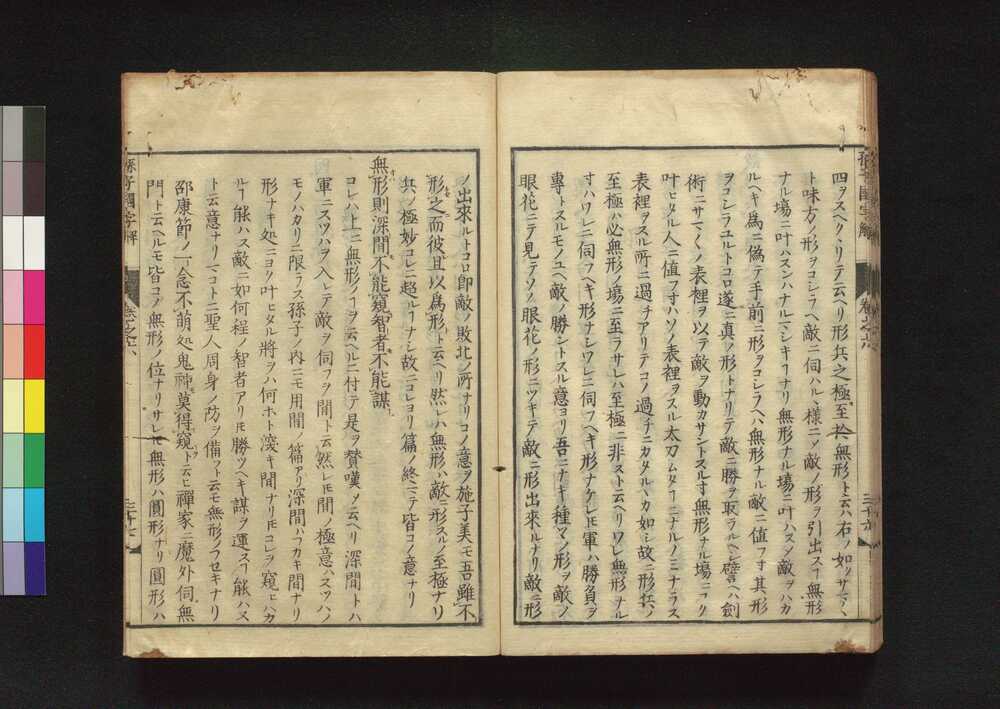 四ヲスヘクヽリテ云ヘリ形兵之極至於無形ト云ハ右ノ如クサマ〱
ト味方ノ形ヲコシラヘ敵ニ伺ハルヽ様ニメ敵ノ形ヲ引出スヿ無形
ナル塲ニ叶ハスンハナルマシキヿナリ無形ナル塲ニ叶ハスメ敵ヲハカ
ルヘキ為ニ偽テ手前ニ形ヲコシラヘハ無形ナル敵ニ値フ寸其形
ヲコシラユルトコロ遂ニ真ノ形トナリテ敵ニ勝ヲ取ラルヘレ譬ヘハ劍
術ニサマ〱ノ表裡ヲ以テ敵ヲ動カサントスル寸無形ナル塲ニヨク
叶ヒタル人ニ値フ寸ハソノ表裡ヲスル太刀ムタヿニナルノミニナラス
表裡ヲスル所ニ過チアリテコノ過チニカタルヽカ如シ故ニ形兵ノ
至極ハ必無形ノ塲ニ至ラサレハ至極ニ非スト云ヘリワレ無形ナル
寸ハワレニ伺フヘキ形ナシワレニ伺フヘキ形ナケレ𪜈軍ハ勝負ヲ
專トスルモノユヘ敵ノ勝ントスル意ヨリ吾ニナキ種マノ形ヲ敵ノ
眼花ニテ見テソノ眼花ノ形ニツキテ敵ニ形出來ルナリ敵ニ形
ノ出來ルトコロ即敵ノ敗北ノ所ナリコノ意ヲ施子美モ吾雖不
形之而彼且以爲形ト云ヘリ然レハ無形ハ敵ニ形スルノ至極ナリ
兵ノ極妙コレニ超ルヿナシ故ニコレヨリ篇ノ終マテ皆コノ意ナリ
無形則深間不能窺智者不能謀
コレハ上ニ無形ノヿヲ云ヘルニ付テ是ヲ賛嘆メ云ヘリ深間トハ
軍ニスツハヲ入レテ敵ヲ伺フヲ間ト云然レ𪜈間ノ極意ハスツハノ
モノハカリニ限ラス孫子ノ内ニモ用間ノ篇アリ深間ハフカキ間ナリ
形ナキ処ニヨク叶ヒタル將ヲハ何ホト深キ間ナリ𪜈コレヲ窺ヒハカ
ルヿ能ハス敵ニ如何程ノ智者アリ𪜈勝ツヘキ謀ヲ運スヿ能ハス
ト云意ナリマコトニ聖人周身ノ防ヲ備フト云モ無形ノフセキナリ
邵康節ノ一念不萠処鬼神莫得窺ト云ヒ禪家ニ魔外伺無
門ト云ヘルモ皆コノ無形ノ位ナリサレ𪜈無形ハ圓形ナリ圓形ハ
孫子國字解
卷之六